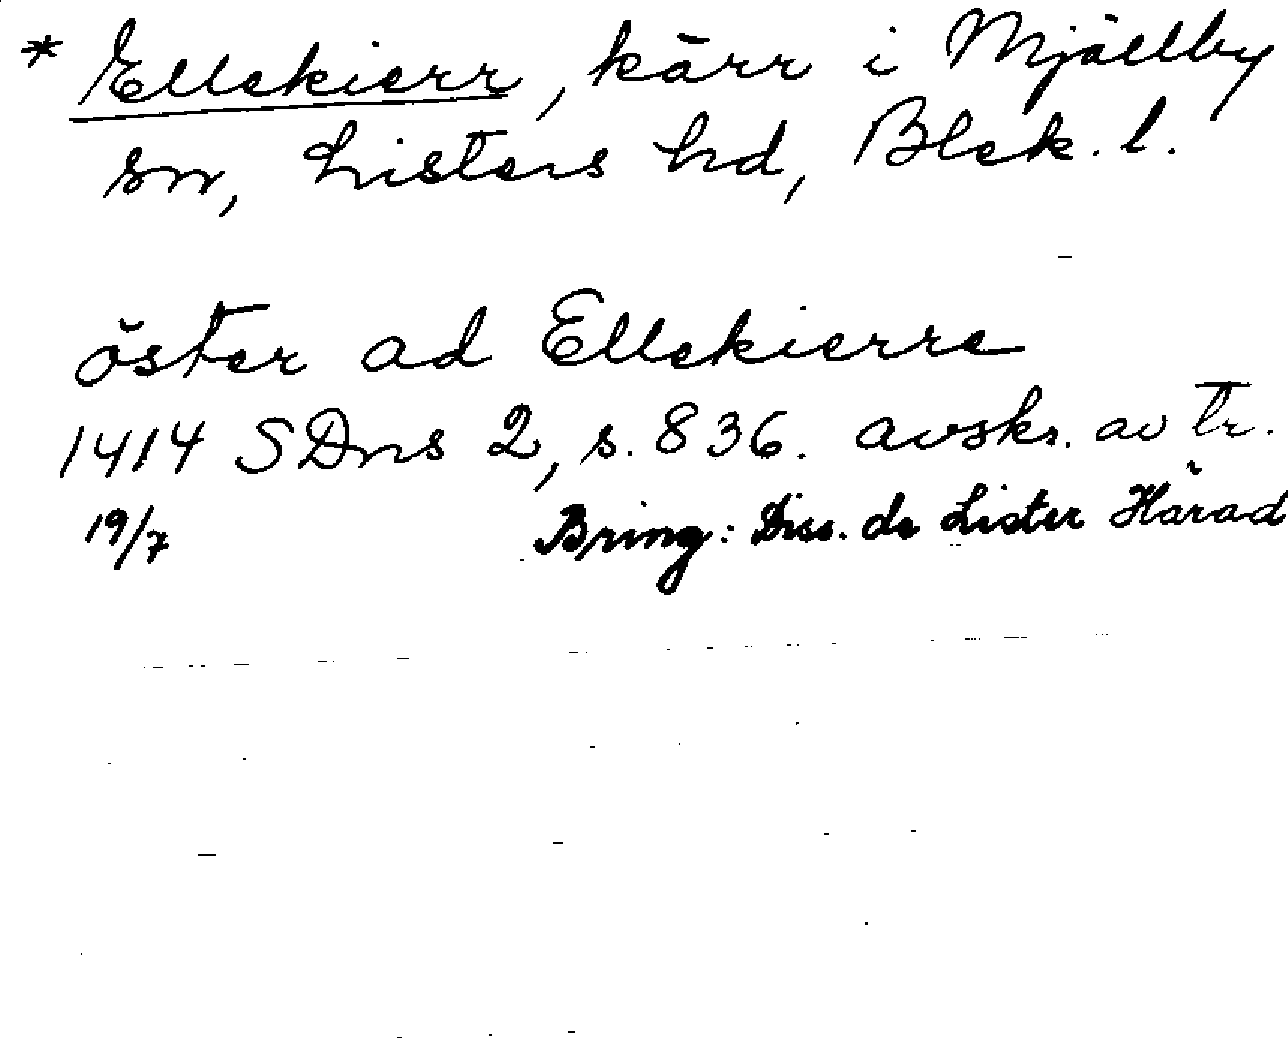 * Ellekierr, kärr i Mjällby
sn, Listers hd, Blek. l.
öster ad Ellekierre
1414 SDns 2, s. 836. avskr. av tr.
19/7 Bring: Diss. de Lister Härad